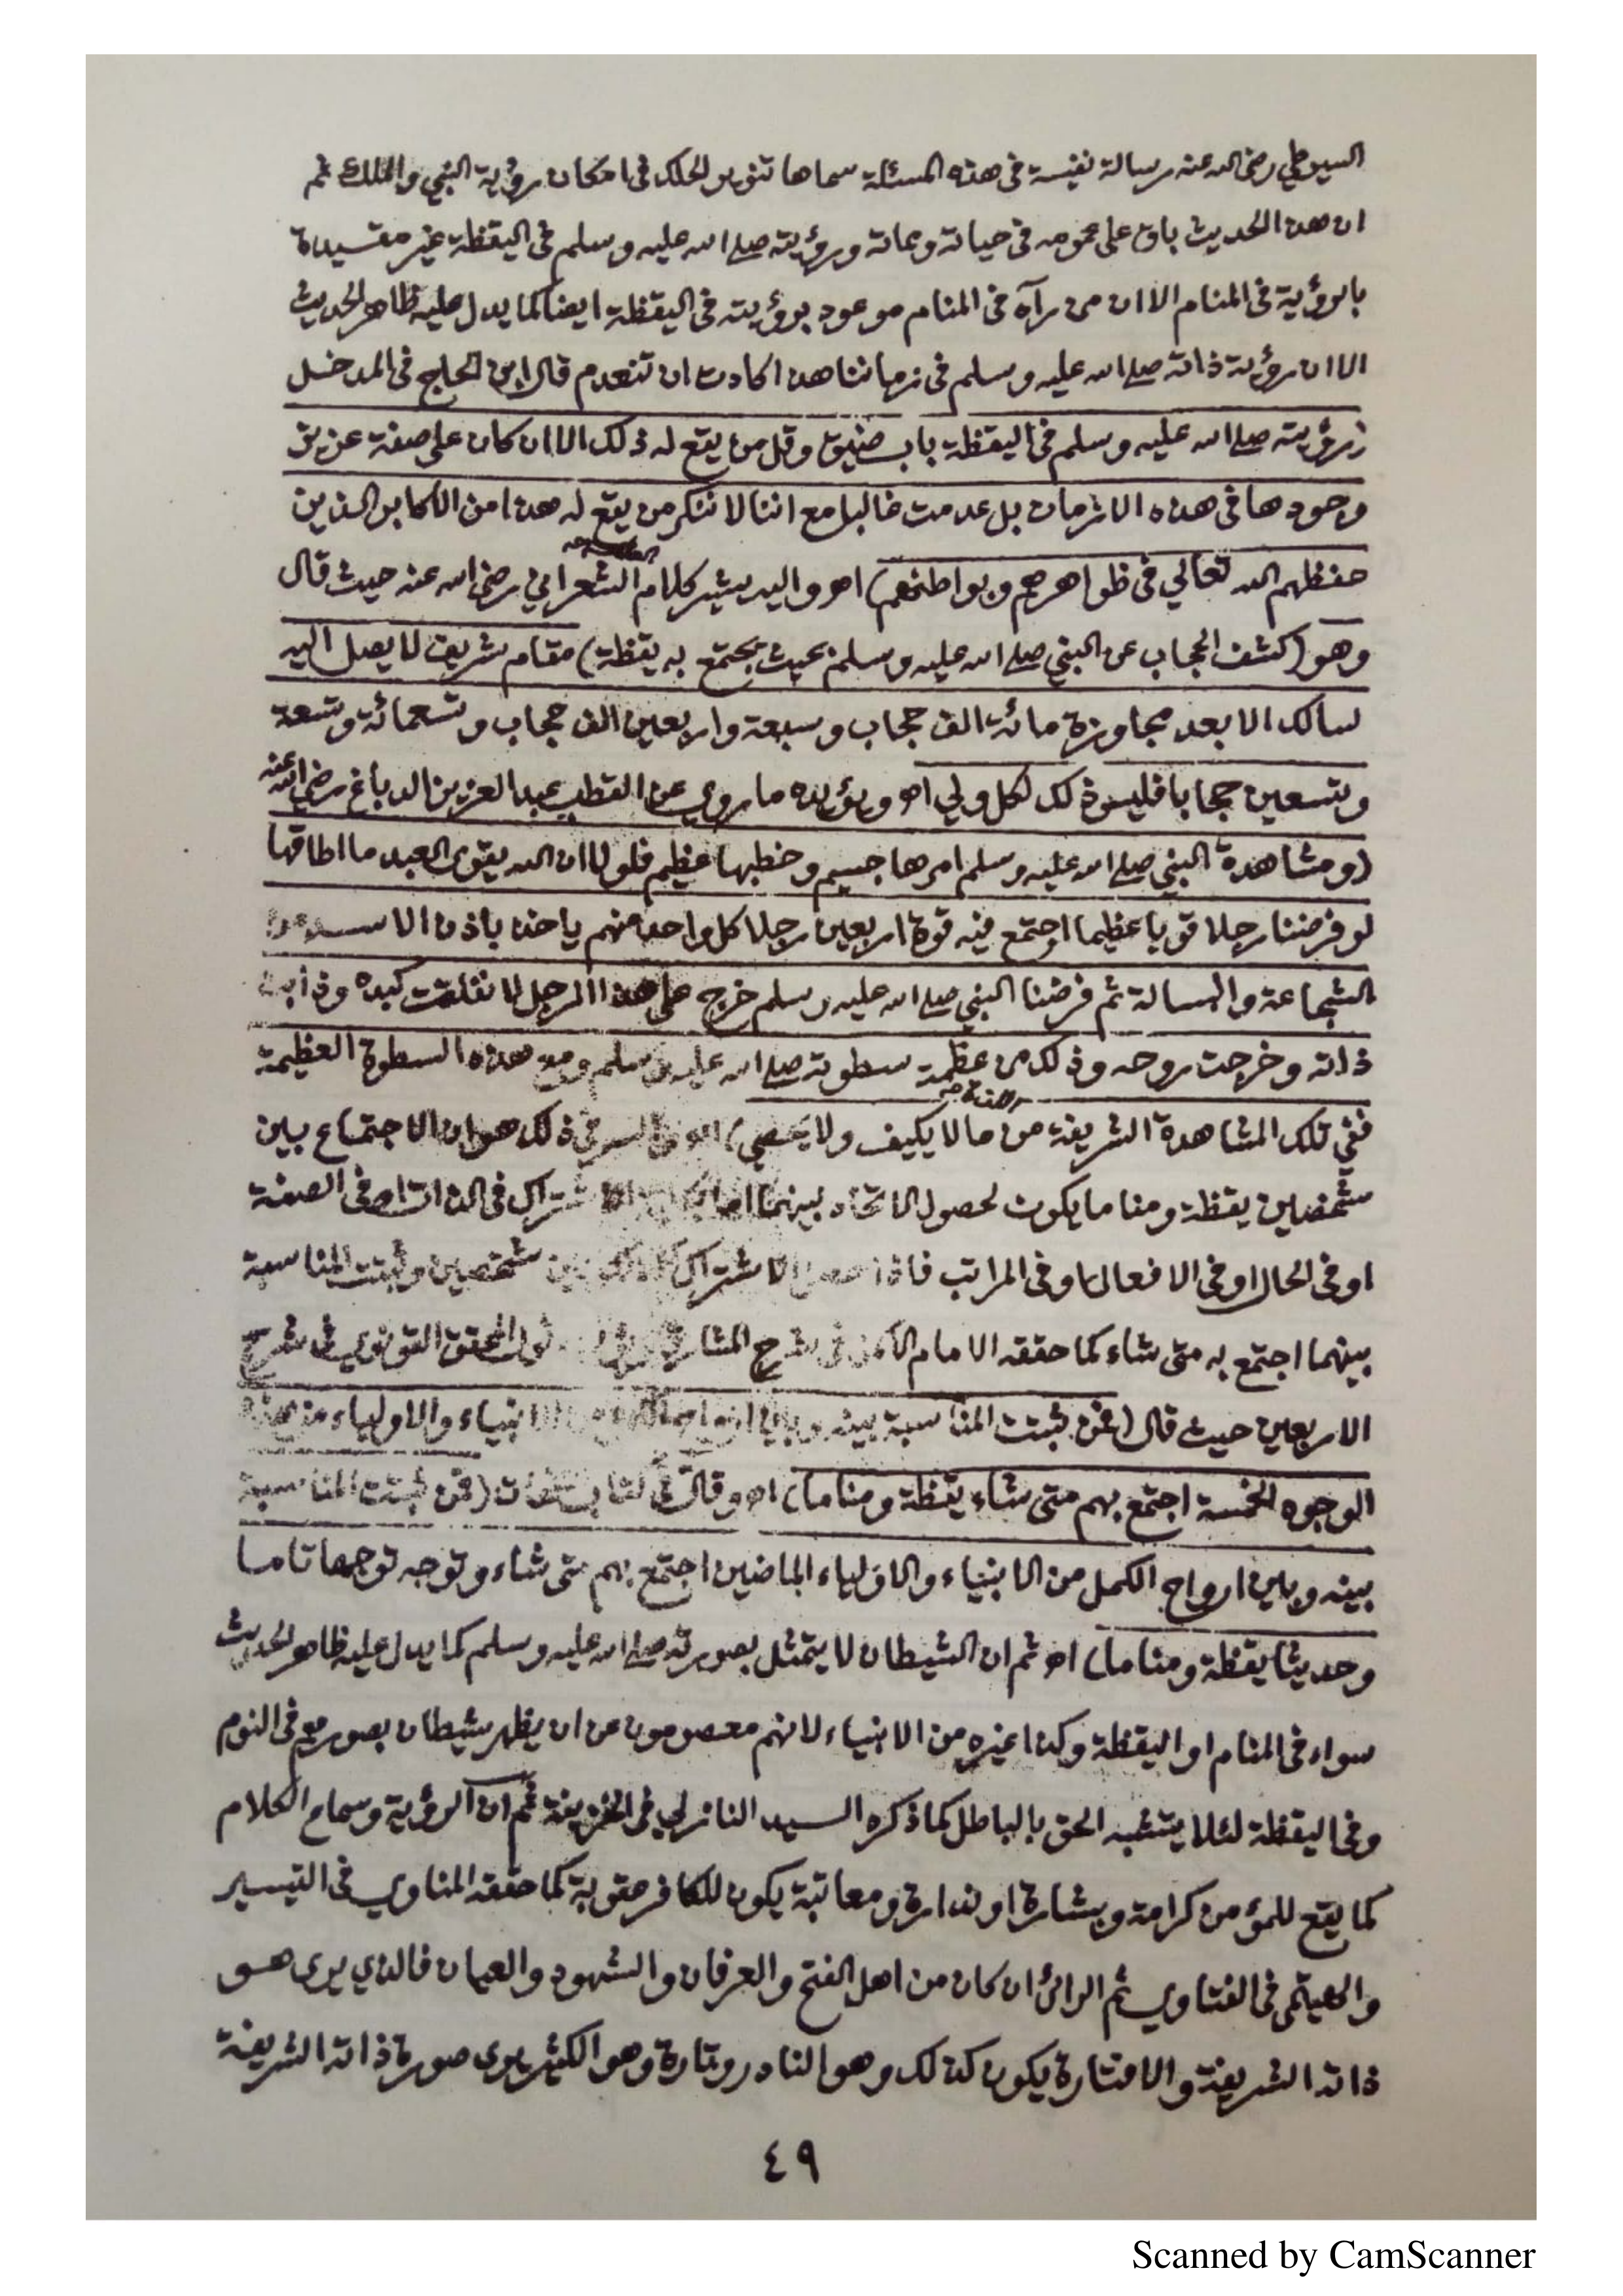 السيوطي رضى الله عنه رسالة نفيسة فى هذه المسئلة سماها تنوير الحلك فى امكان رؤية النبي والملك ثم
ان هذا الحديث باق على عمومه فى حياته ومماته ورؤيته صلى الله عليه وسلم فى اليقظة غير مقيدة
بالرؤية فى المنام الا ان من رآه فى المنام موعود برؤيته فى اليقظة ايضا كما يدل عليه ظاهر الحديث
الا ان رؤية ذاته صلى الله عليه وسلم فى زماننا هذا كادت ان تنعدم قال ابن الحاج فى المدخل
(رؤيته صلى الله عليه وسلم فى اليقظة باب ضيق وقل من يقع له ذلك الا ان كان على صفة عزيز
وجودها فى هذه الازمان بل عدمت غالبا مع اننا لا ننكر من يقع له هذا من الاكابر الذين
حفظهم الله تعالي فى ظواهرهم وبواطنهم) اهـ واليه يشير كلام الشعراني رضى الله عنه حيث قال
وهو (كشف الحجاب عن النبي صلى الله عليه وسلم بحيث يجتمع به يقظة) مقام شريف لا يصل اليه
سالك الا بعد مجاوزة مائة الف حجاب وسبعة واربعين الف حجاب وتسعمائة وتسعة
وتسعين حجابا فليس ذلك لكل ولي اهـ ويؤيده ما روي عن القطب عبد العزيز الدباغ رضى الله عنه
(ومشاهدة النبي صلى الله عليه وسلم امرها جسيم وخطبها عظيم فلولا ان الله يقوى العبد ما اطاقها
لو فرضنا رجلا قويا عظيما اجتمع فيه قوة اربعين رجلا كل واحد منهم ياخذ باذن الاسد من
الشجاعة والبسالة ثم فرضنا النبي صلى الله عليه وسلم خرج على هذا الرجل لانفلقت كبده وذابت
ذاته وخرجت روحه وذلك من عظمة سطوته صلى الله عليه وسلم ومع هذه السطوة العظيمة
ففي تلك المشاهدة الشريفة من اللذة ما لا يكيف ولا يحصي) اهـ والسر فى ذلك هو ان الاجتماع بين
شخصين يقظة ومناما يكون لحصول الاتحاد بينهما اما الاشتراك فى الذات او فى الصفة
او فى الحال او فى الافعال او فى المراتب فاذا حصل الاشتراك بين شخصين وثبتت المناسبة
بينهما اجتمع به متى شاء كما حققه الامام الاكمل فى شرح المشارق قول المحقق القونوي فى شرح
الاربعين حيث قال (فمن ثبتت المناسبة بينه وبين ارواح الانبياء والاولياء من هذه
الوجوه الخمسة اجتمع بهم متى شاء يقظة ومناما) اهـ وقال فى كتاب (فمن ثبتت المناسبة
بينه وبين ارواح الكمل من الانبياء والاولياء الماضين اجتمع بهم متى شاء وتوجه توجها تاما
وحديثا يقظة ومناما) اهـ ثم ان الشيطان لا يتمثل بصورته صلى الله عليه وسلم كما يدل عليه ظاهر الحديث
سواء فى المنام او اليقظة وكذا غيره من الانبياء لانهم معصومون عن ان يظهر شيطان بصورهم فى النوم
وفى اليقظة لئلا يشتبه الحق بالباطل كما ذكره السيد النازلي فى الخزينة ثم ان الرؤية وسماع الكلام
كما يقع للمؤمن كرامة وبشارة او نذارة ومعاتبة يكون للكافر عقوبة كما حققه المناوي فى التيسير
والهيتمى فى الفتاوي ثم الرائى ان كان من اهل الفتح والعرفان والشهود والعيان فالذي يرى هو
ذاته الشريفة والا فتارة يكون كذلك وهو النادر وتارة وهو الكثير يرى صورة ذاته الشريفة
٤٩
Scanned by CamScanner